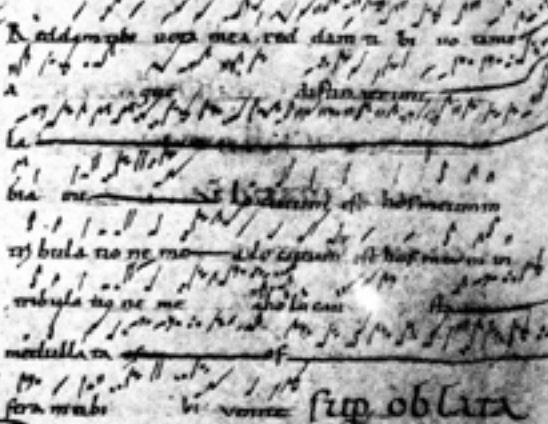 Reddam tibi uota mea red dam ti bi uo tame
a que distinxerunt
la
bia me Locutum est hosmeumin
tri bula tio ne me a lo cutum est hos meum in
tribula tio ne me holo cau sta
medulla ta of of
feram tibi bi uenite Sup oblata